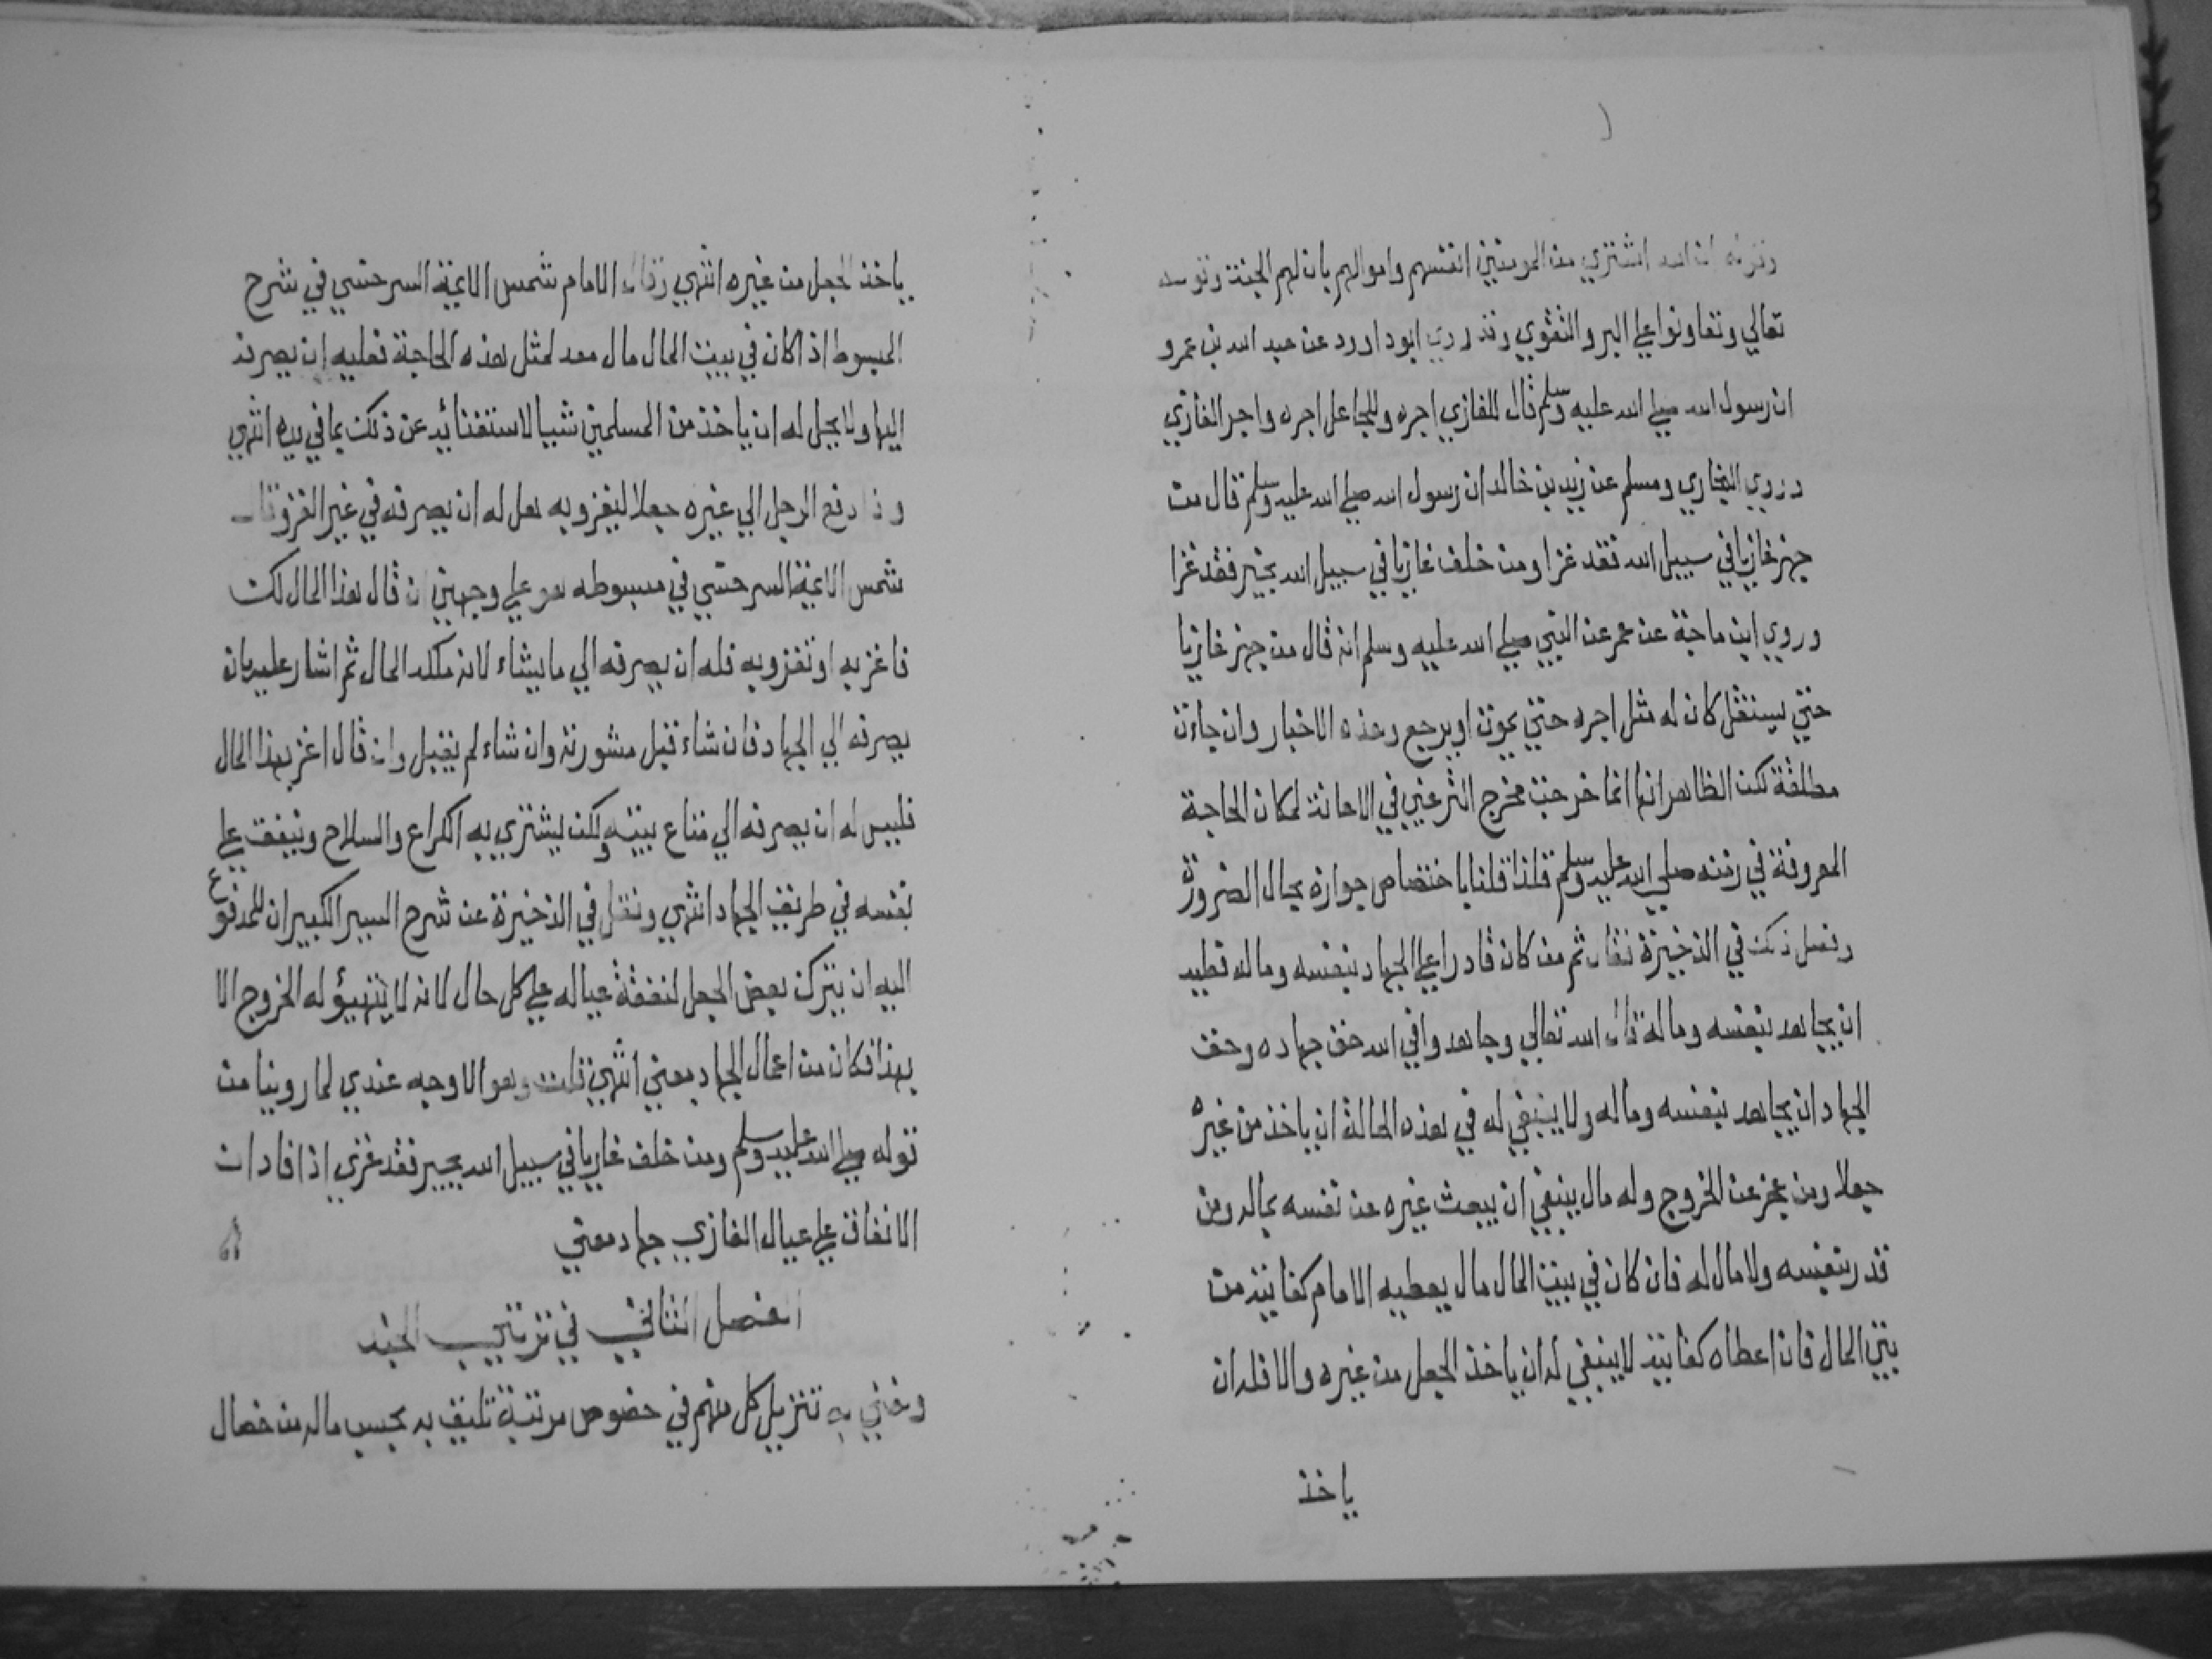 وقوله ان الله اشتري من المومنين انفسهم واموالهم بان لهم الجنة وقوله
تعالي وتعاونوا علي البر والتقوي وقد روي ابوداوود عن عبد الله بن عمرو
ان رسول الله صلي الله عليه وسلم قال للغازي اجره وللجاعل اجره واجر الغازي
وروي البخاري ومسلم عن زيد بن خالد ان رسول الله صلي الله عليه وسلم قال من
جهز غازيا في سبيل الله فقد غزا ومن خلف غازيا في سبيل الله بخير فقد غزا
وروي ابن ماجة عن عمر عن النبي صلي الله عليه وسلم انه قال من جهز غازيا
حتي يستقل كان له مثل اجره حتي يموت او يرجع وهذه الاخبار وان جاءت
مطلقة لكن الظاهر انها انما خرجت مخرج الترغيب في الاعانة لمكان الحاجة
المعروفة في زمنه صلي الله عليه وسلم فلذا قلنا باختصاص جوازه بحال الضرورة
وفصل ذلك في الذخيرة فقال ثم من كان قادرا علي الجهاد بنفسه وماله فعليه
ان يجاهد بنفسه وماله قال الله تعالي وجاهدوا في الله حق جهاده وحق
الجهاد ان يجاهد بنفسه وماله ولا ينبغي له في هذه الحالة ان ياخذ من غيره
جعلا ومن عجز عن الخروج وله مال ينبغي ان يبعث غيره عن نفسه بماله ومن
قدر بنفسه ولا مال له فان كان في بيت المال مال يعطيه الامام كفايته من
بيت المال فان اعطاه كفايته لا ينبغي له ان ياخذ الجعل من غيره والا فله ان
ياخذ
ياخذ الجعل من غيره انتهي وقال الامام شمس الائمة السرخسي في شرح
المبسوط اذا كان في بيت المال مال معد لمثل هذه الحاجة فعليه ان يصرفه
اليها ولا يحل له ان ياخذ من المسلمين شيا لاستغنائه عن ذلك بما في يده انتهي
واذا دفع الرجل الي غيره جعلا ليغزو به هل له ان يصرفه في غير الغزو قال
شمس الائمة السرخسي في مبسوطه هو علي وجهين ان قال هذا المال لك
فاغز به او تغزو به فله ان يصرفه الي ما يشاء لانه ملكه المال ثم اشار عليه بان
يصرفه الي الجهاد فان شاء قبل مشورته وان شاء لم يقبل وان قال اغز بهذا المال
فليس له ان يصرفه الي متاع بيته ولكن يشتري به الكراع والسلاح وينفق علي
نفسه في طريق الجهاد انتهي ونقل في الذخيرة عن شرح السير الكبير ان للمدفوع
اليه ان يترك بعض الجعل لنفقة عياله علي كل حال لانه لا يتهيؤ له الخروج الا
بهذا فكان من اعمال الجهاد معني انتهي قلت وهو الاوجه عندي لما روينا من
قوله صلي الله عليه وسلم ومن خلف غازيا في سبيل الله بخير فقد غزي اذ افاد ان
الانفاق علي عيال الغازي جهاد معني
الفصل الثاني في ترتيب الجند
ونعني به تنزيل كل منهم في خصوص مرتبة تليق به بحسب ماله من خصال